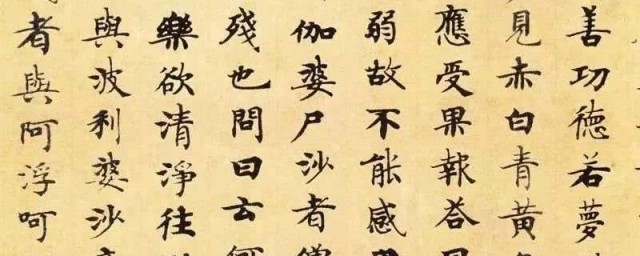 善功德若夢
見赤白青黄
應受果報答
弱故不能感
伽婆尸沙者僧
殘也問曰云何
樂欲清淨往
與波利婆沙
者與阿浮呵